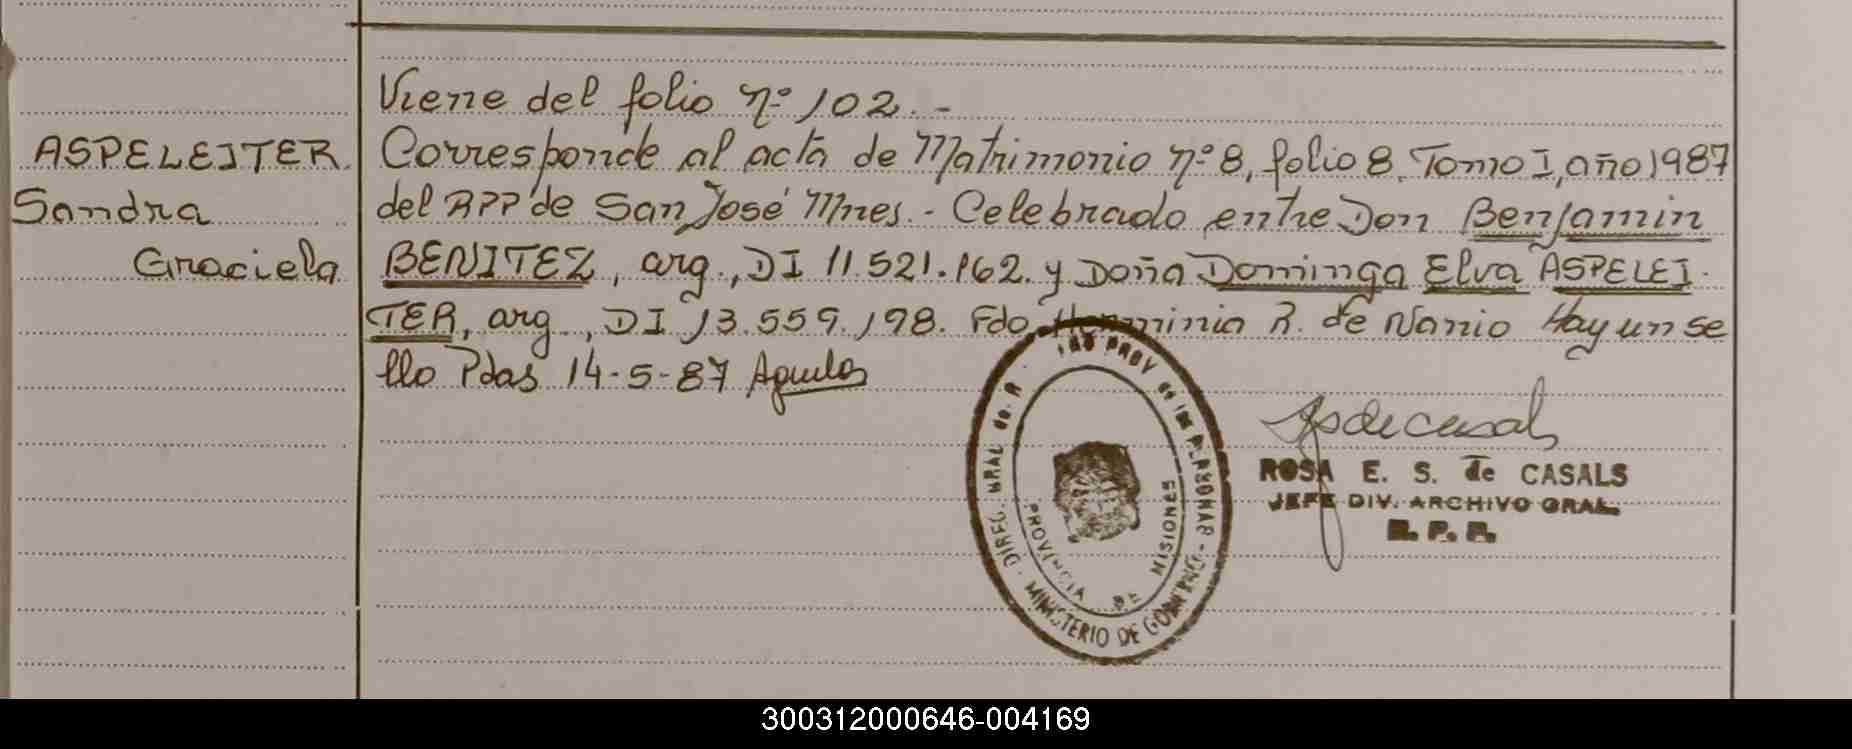 Viene del folio nº 102.-
ASPELEITER Corresponde al acta de Matrimonio nº 8, folio 8, Tomo I, año 1987
Sandra del RPP de San José Mnes.- Celebrado entre Don Benjamin
Graciela BENITEZ, arg., DI 11.521.162. y Doña Dominga Elva ASPELEI
TER, arg., DI 13.559.198. Fdo Herminia R. de Nanio Hay un se
llo Pdas 14-5-87
ROSA E. S. de CASALS
JEFE DIV. ARCHIVO GRAL.
R. P. P.
PROV de las PERSONAS - MINISTERIO DE GOBIERNO - DIREC. GRAL de R.
PROVINCIA DE MISIONES
300312000646-004169